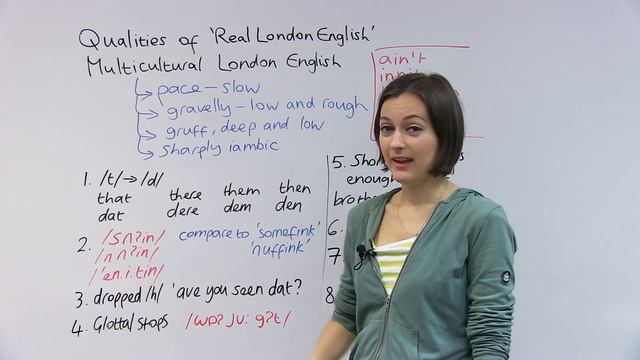 Qualities of 'Real London English'
Multicultural London English
pace – slow
gravelly – low and rough
gruff, deep and low
sharply iambic
ain't
1. /t/→/d/
that there them then
dat dere dem den
2. /sʌʔin/ compare to 'somefink'
/nʌʔin/ 'nuffink'
/'en.i.tin/
3. dropped /h/ 'ave you seen dat?
4. Glottal stops /wɒʔ ju: gɒt/
5.
enough
6.
7.
8